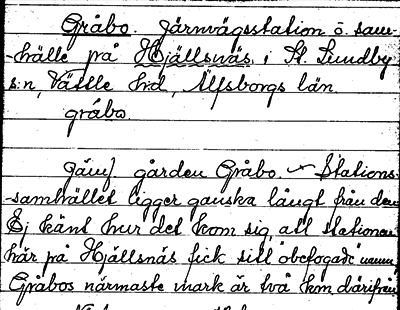 Gråbo. Järnvägsstation o. sam-
-hälle på Hjällsnäs i St. Lundby
s:n, Vättle hd, Älfsborgs län.
gråbo.
Jämf. gården Gråbo. – Stations-
-samhället ligger ganska långt från den
Ej känt hur det kom sig, att stationen
här på Hjällsnäs fick sitt "obefogade" namn,
Gråbos närmaste mark är två km därifrån